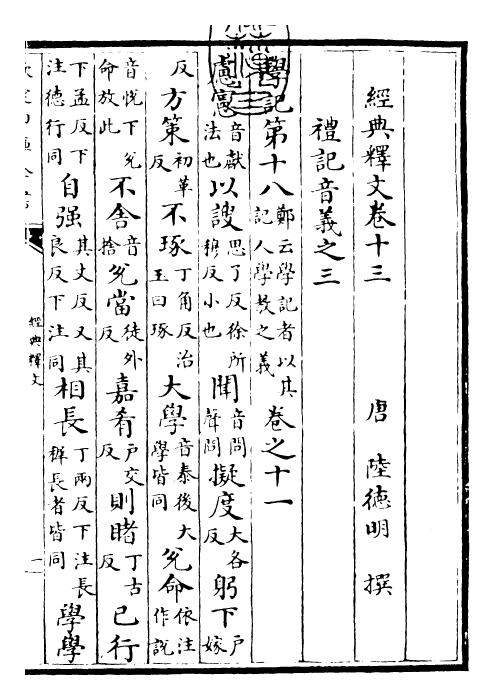 經典釋文卷十三 唐 陸德明 撰
禮記音義之三
學記第十八鄭云學記者以其記人學教之義卷之十一
慮憲音獻法也以謏思了反徐所穆反小也聞音問聲問擬度大各反躬下戶嫁
反方策初革反不琢丁角反治玉曰琢大學音泰後大學皆同兊命依注作說
音悅下兊命放此不舍音捨兊當徒外反嘉肴戶交反則睹丁古反已行
下孟反下注德行同自强其丈反又其良反下注同相長丁兩反下注長稺長者皆同學學
經典釋文
一